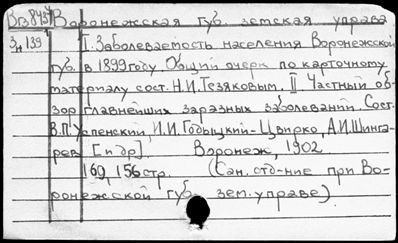 ВВ 8434 Воронежская губ. земская управа
Зд 139 I. Заболеваемость населения Воронежской
губ. в 1899 году. Общий очерк по карточному
материалу сост. Н.И. Тезяковым. II Частный об-
зор главнейших заразных заболеваний. Сост.
В.П. Успенский, И.И. Годыцкий-Цвирко, А.И. Шинга-
рев [и др] Воронеж, 1902
169, 156 стр. (Сан. отд-ние при Во-
ронежской губ. зем. управе)